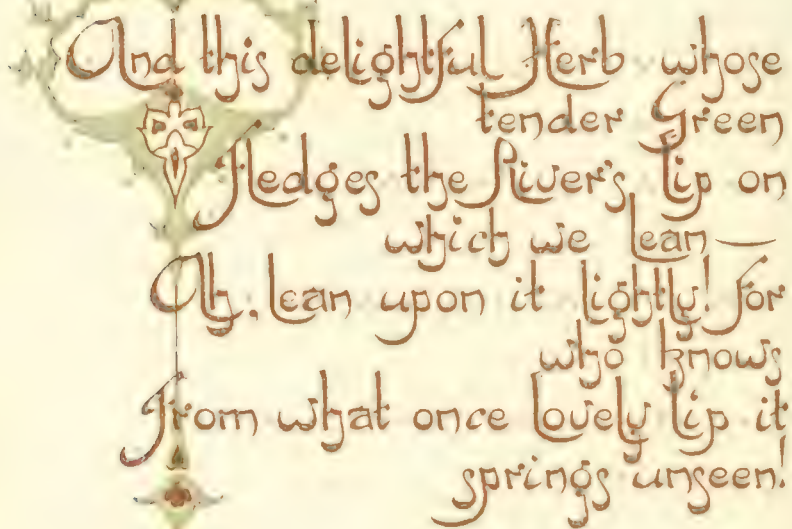 And this delightful Herb whose
tender Green
Fledges the River's Lip on
which we lean—
Ah, lean upon it lightly! for
who knows
From what once lovely Lip it
springs unseen!